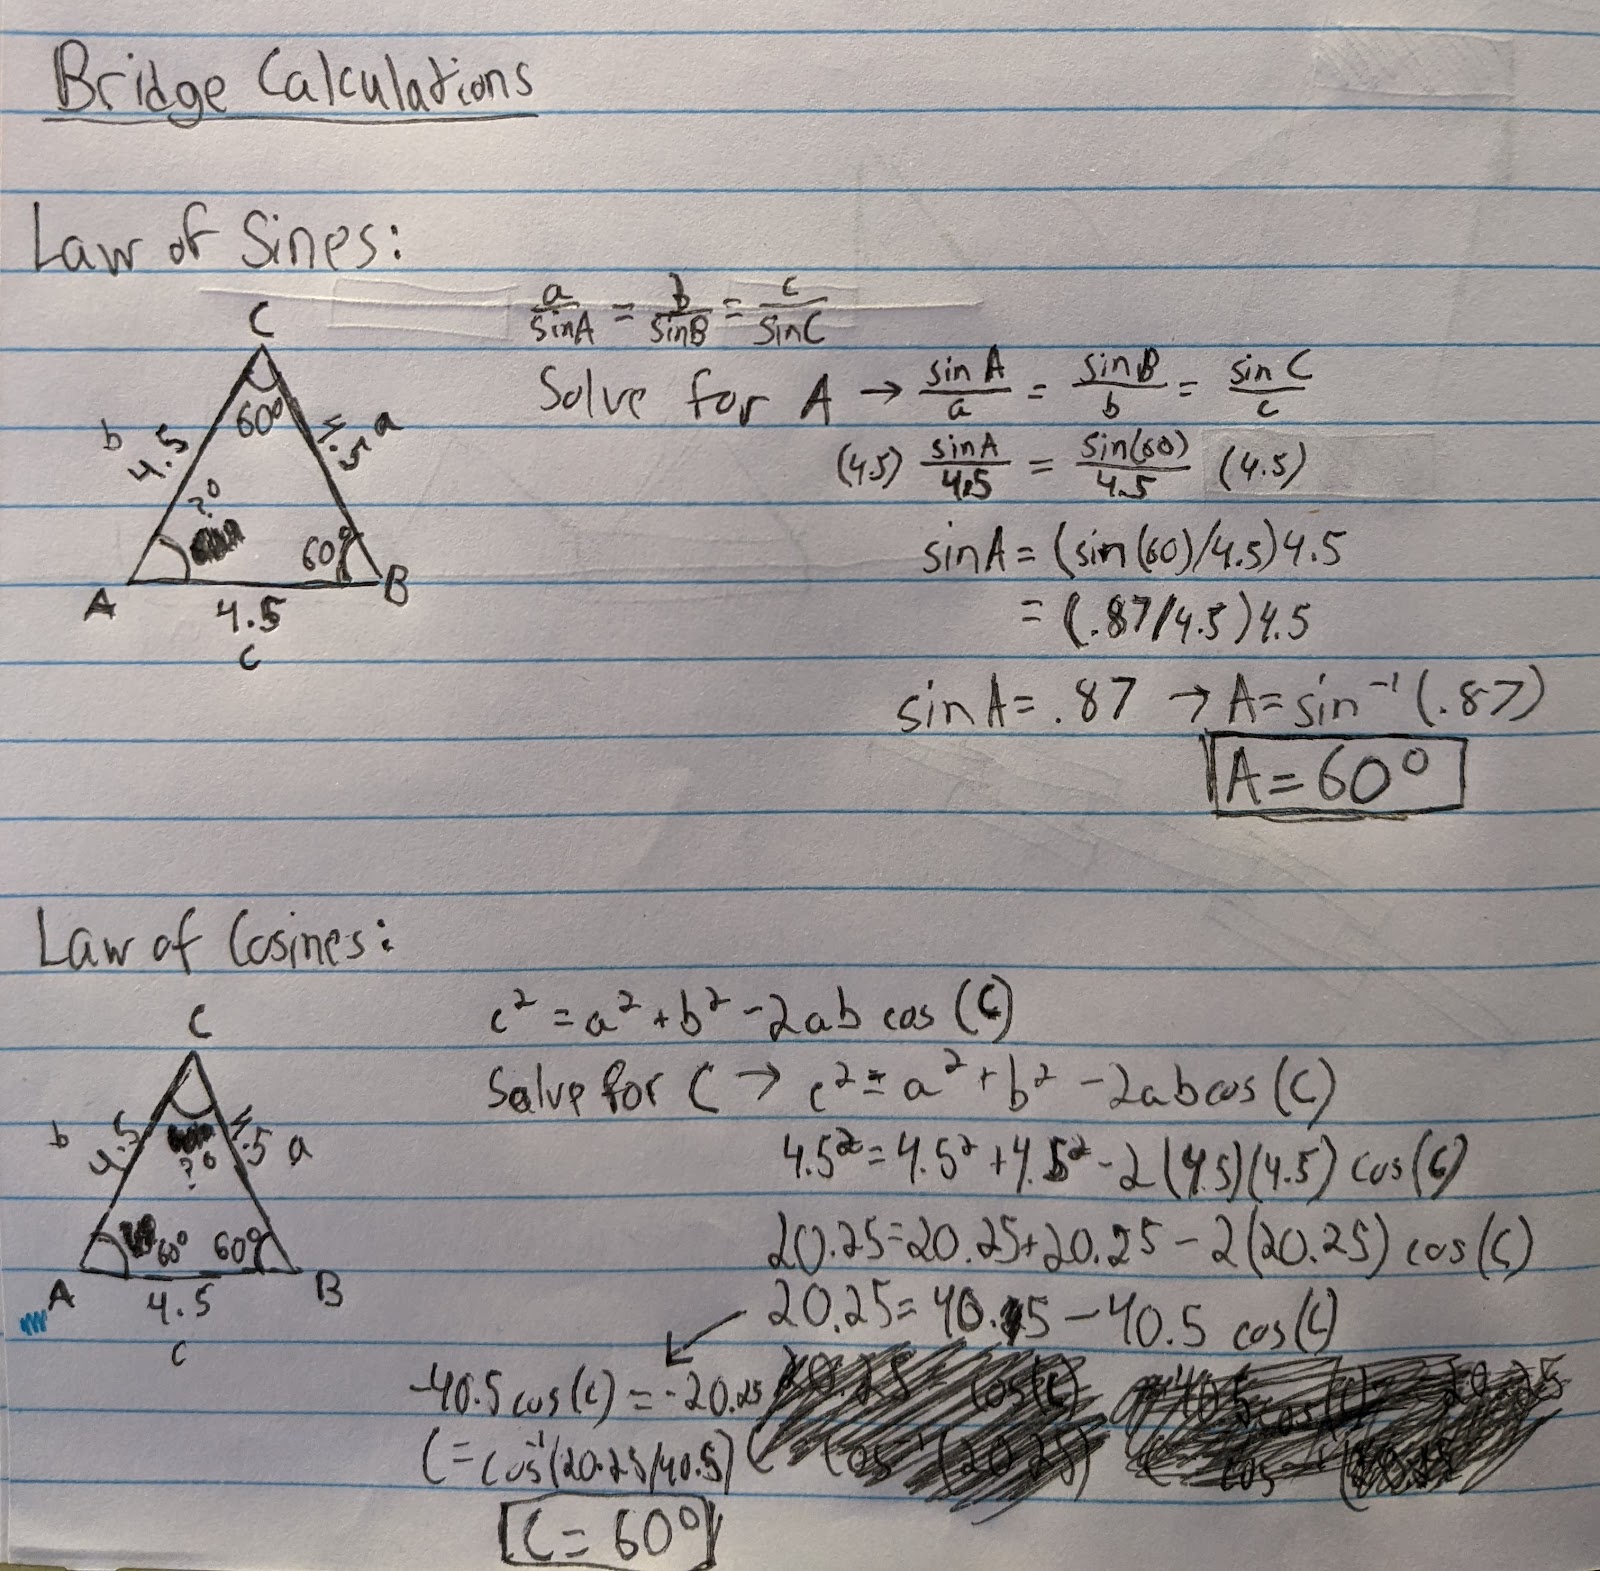 Bridge Calculations
Law of Sines:
a/sinA = b/sinB = c/sinC
C
60°
b
4.5
4.5
a
?°
60°
A
B
4.5
c
Solve for A → sinA/a = sinB/b = sinC/c
(4.5) sinA/4.5 = sin(60)/4.5 (4.5)
sinA = (sin(60)/4.5)4.5
= (.87/4.5)4.5
sinA = .87 → A = sin⁻¹(.87)
A = 60°
Law of Cosines:
c² = a² + b² - 2ab cos(C)
C
b
4.5
4.5
a
?°
60°
60°
A
B
4.5
c
Solve for C → c² = a² + b² - 2ab cos(C)
4.5² = 4.5² + 4.5² - 2(4.5)(4.5) cos(C)
20.25 = 20.25 + 20.25 - 2(20.25) cos(C)
20.25 = 40.5 - 40.5 cos(C)
-40.5 cos(C) = -20.25
C = cos⁻¹(20.25/40.5)
C = 60°